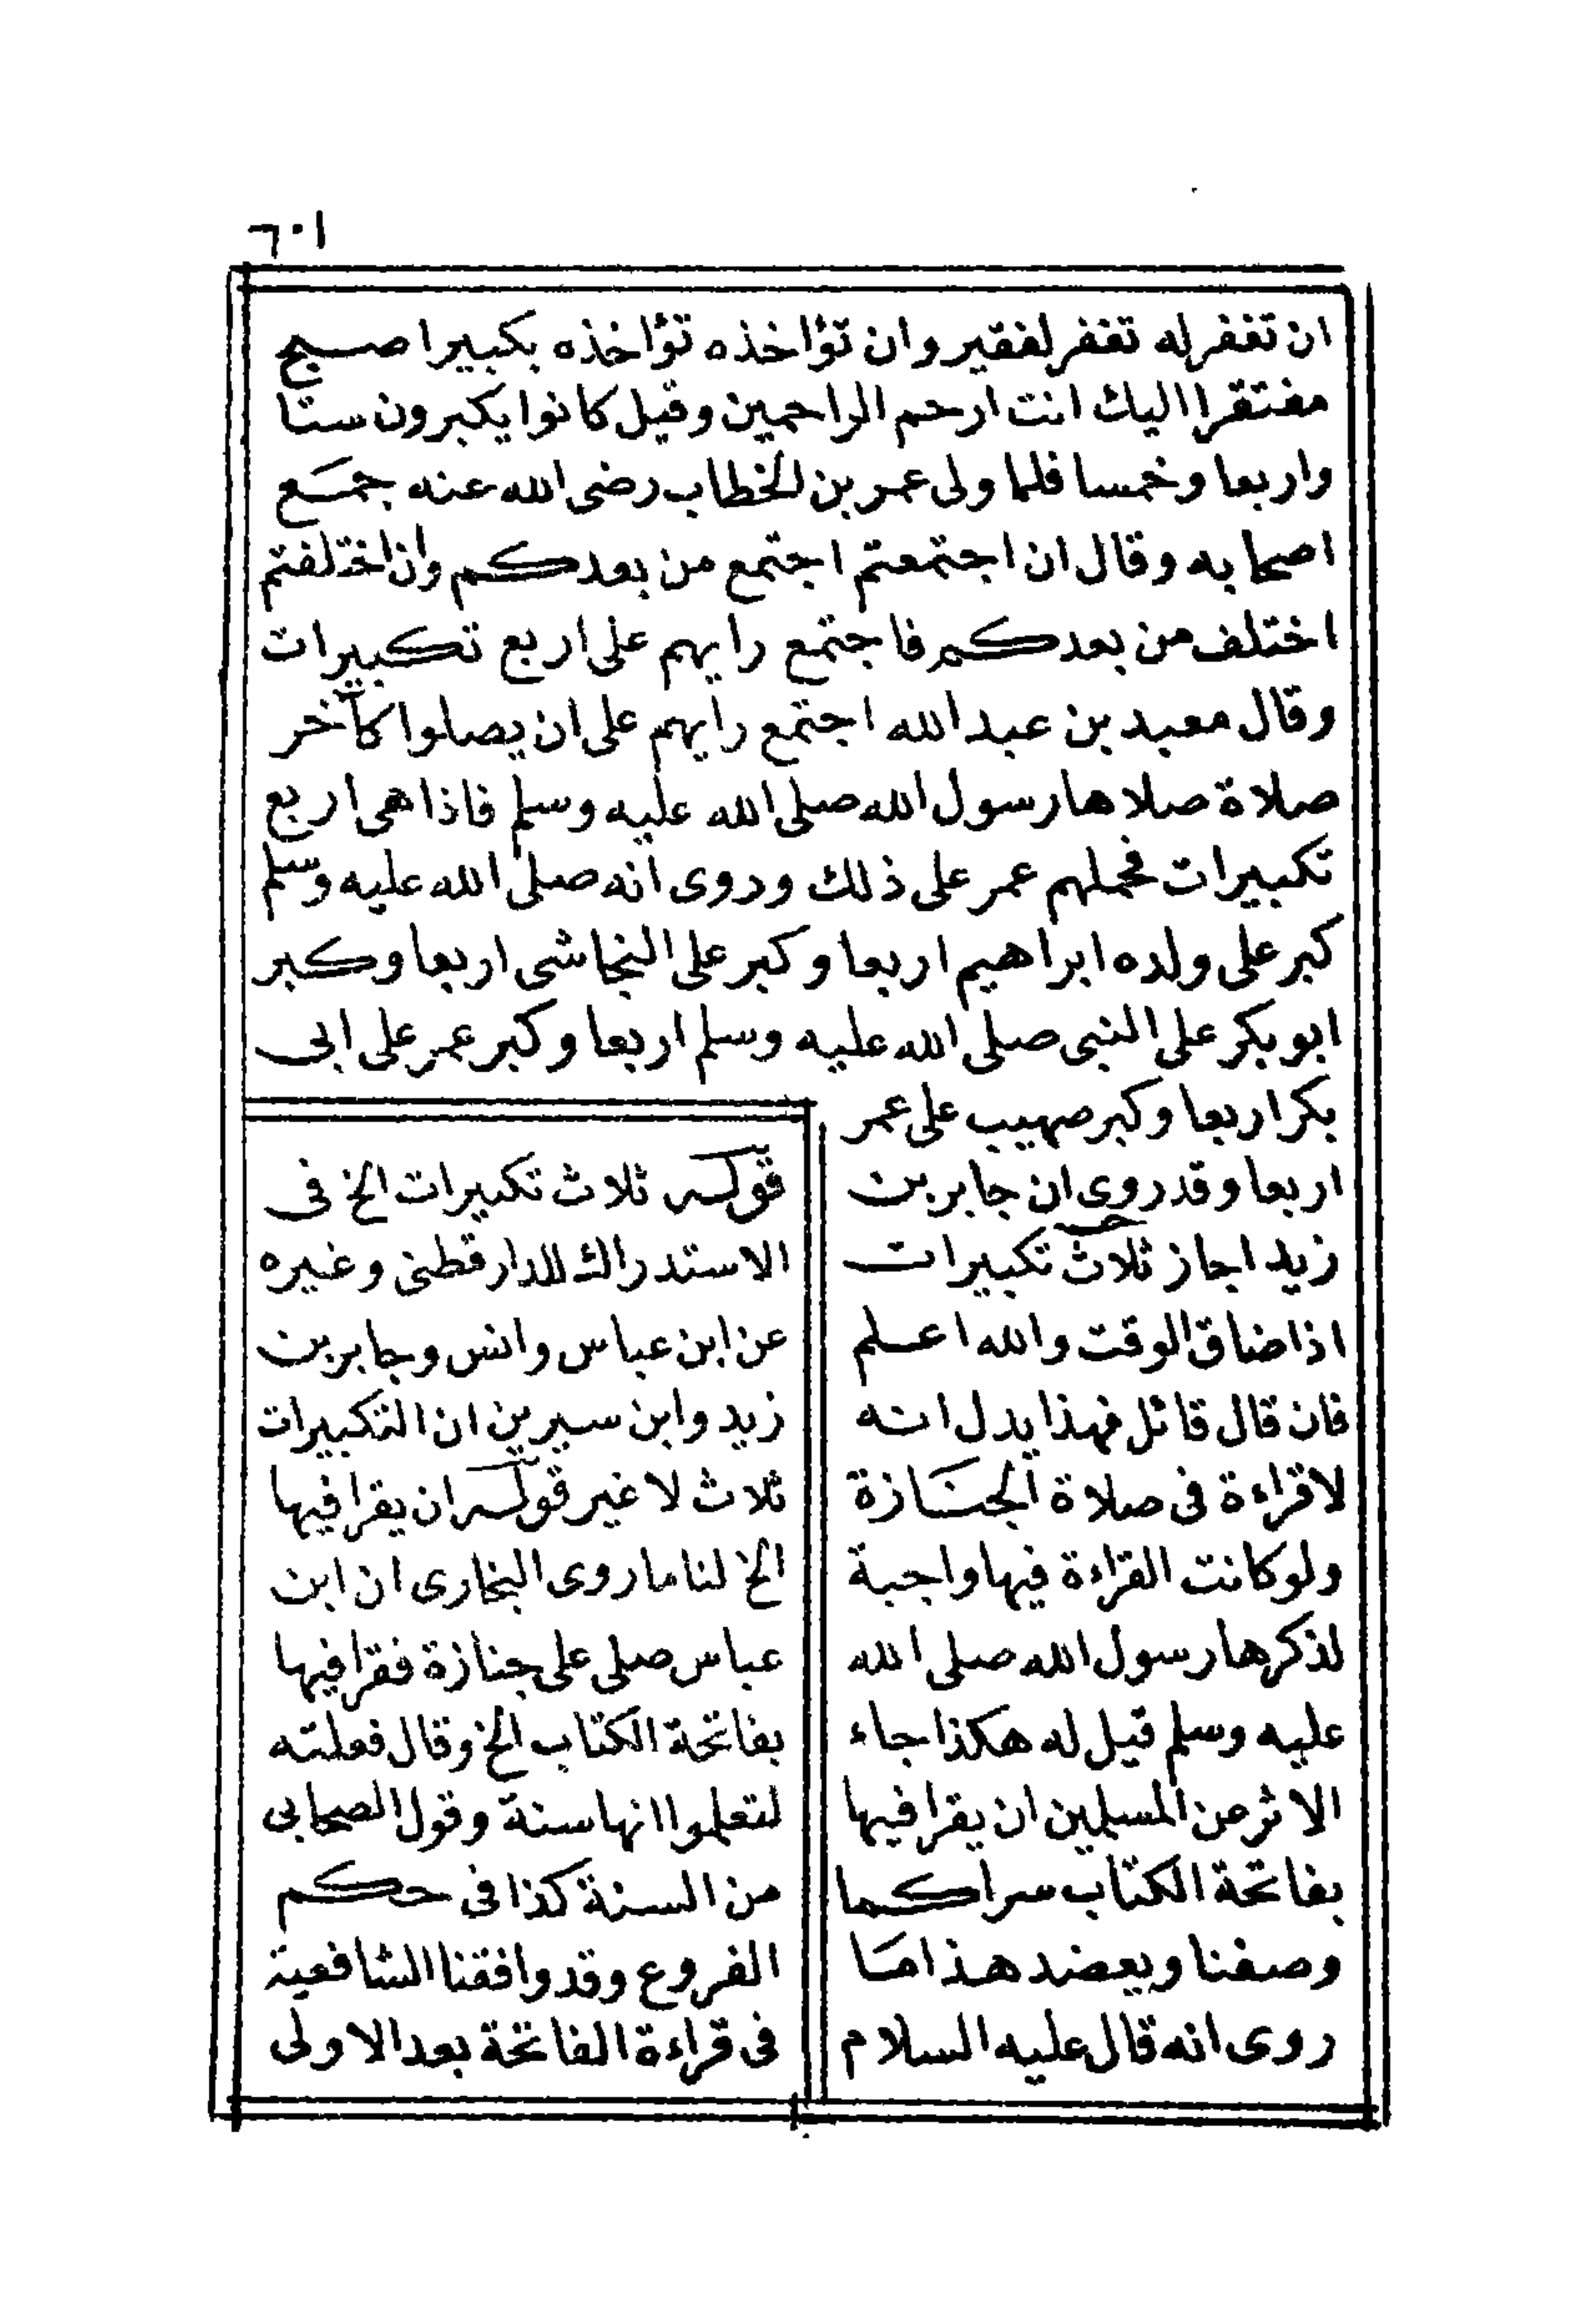 ٦٠١
ان تغفر له تغفر لفقير وان تؤاخذه تؤاخذه بكبير اصبح
مفتقرا اليك انت ارحم الراحمين وقيل كانوا يكبرون ستا
واربعا وخمسا فلما ولى عمر بن الخطاب رضى الله عنه جمع
اصحابه وقال ان اجتمعتم اجتمع من بعدكم وان اختلفتم
اختلف من بعدكم فاجتمع رايهم على اربع تكبيرات
وقال معبد بن عبد الله اجتمع رايهم على ان يصلوا كآخر
صلاة صلاها رسول الله صلى الله عليه وسلم فاذا هى اربع
تكبيرات فحملهم عمر على ذلك وروى انه صلى الله عليه وسلم
كبر على ولده ابراهيم اربعا وكبر على النجاشى اربعا وكبر
ابو بكر على النبى صلى الله عليه وسلم اربعا وكبر عمر على ابى
بكر اربعا وكبر صهيب على عمر
اربعا وقد روى ان جابر بن
زيد اجاز ثلاث تكبيرات
اذا ضاق الوقت والله اعلم
فان قال قائل فهذا يدل انه
لا قراءة فى صلاة الجنازة
ولو كانت القراءة فيها واجبة
لذكرها رسول الله صلى الله
عليه وسلم قيل له هكذا جاء
الاثر عن المسلمين ان يقرا فيها
بفاتحة الكتاب سرا كما
وصفنا ويعضد هذا ما
روى انه قال عليه السلام
قوله ثلاث تكبيرات الخ فى
الاستدراك للدارقطنى وغيره
عن ابن عباس وانس وجابر بن
زيد وابن سيرين ان التكبيرات
ثلاث لا غير قوله ان يقرا فيها
الخ لنا ما روى البخارى ان ابن
عباس صلى على جنازة فقرا فيها
بفاتحة الكتاب الخ وقال فعلته
لتعلموا انها سنة وقول الصحابى
من السنة كذا فى حكم
الفروع وقد وافقنا الشافعية
فى قراءة الفاتحة بعد الاولى